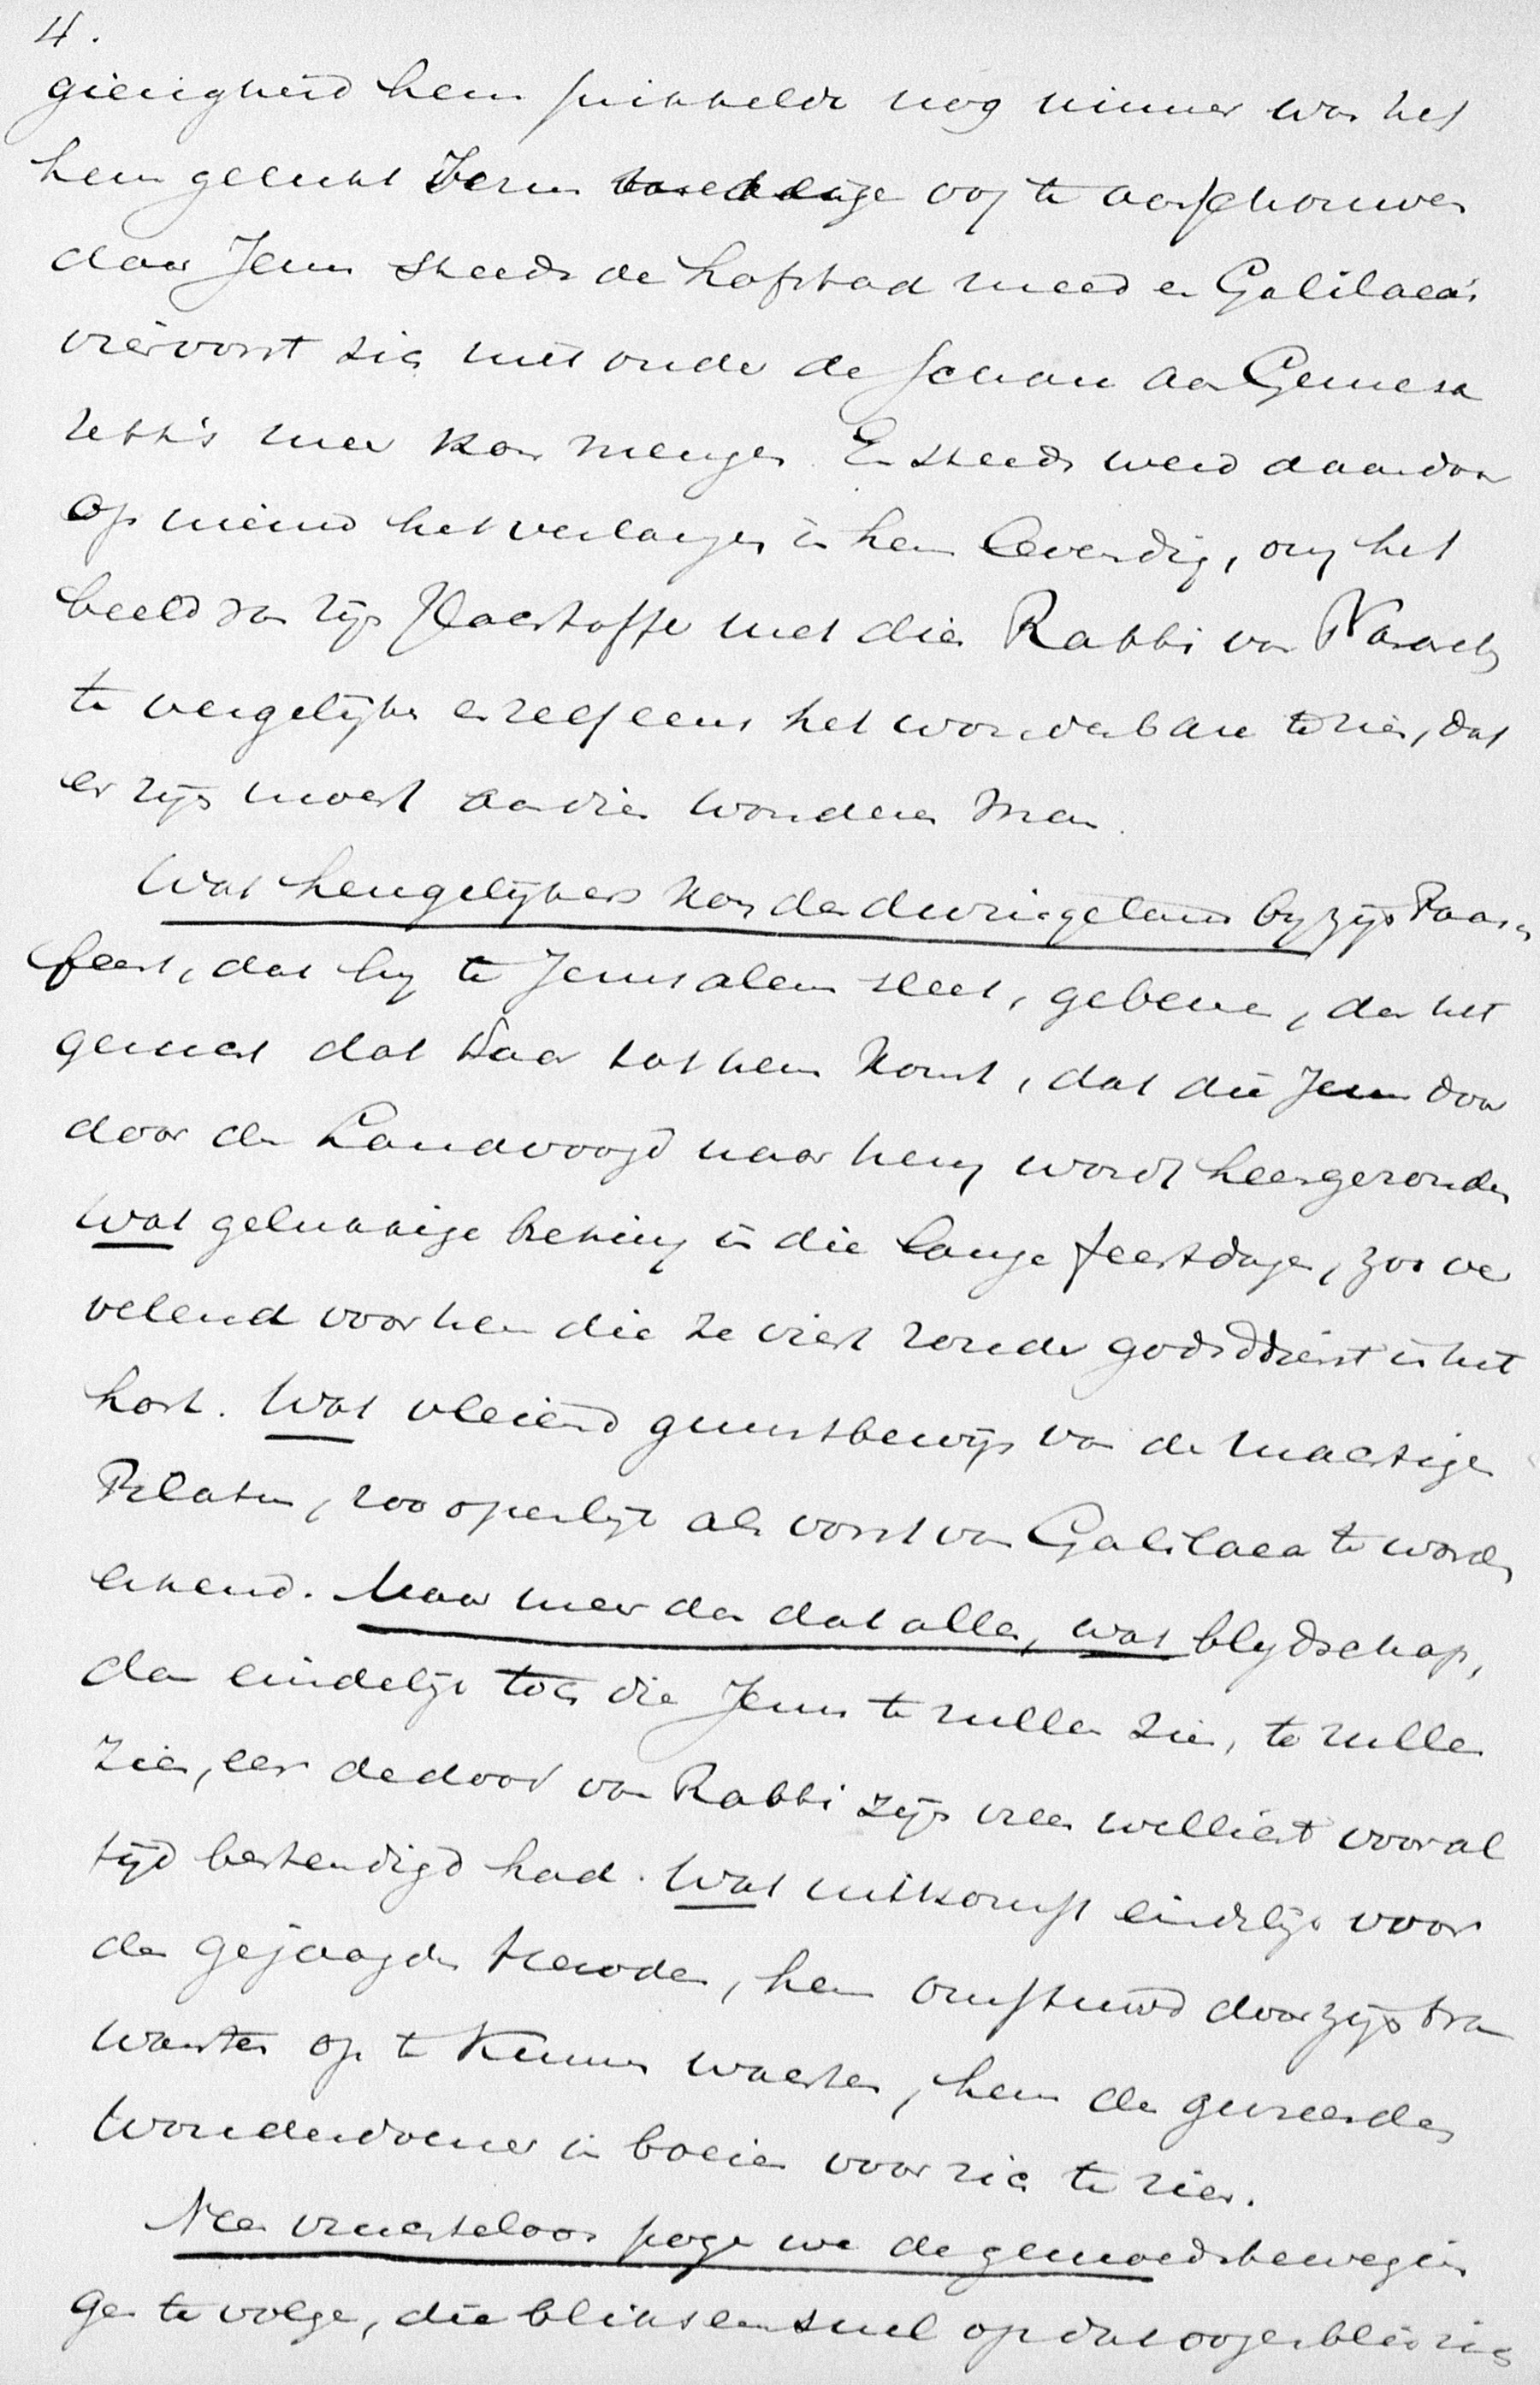 4.
gierigheid hem prikkelde nog nimmer was het
hem gelukt Jezus oog te aanschouwen
daar Jezus steeds de hofstad meed en Galilaea's
viervorst zich niet onder de schare aan Genesa
reth's meer kon mengen. En steeds werd daardoor
op nieuw het verlangen in hem levendig, om het
beeld van zijn met dien Rabbi van Nazareth
te vergelijken en zelf eens het wonderbare te zien, dat
er zijn moest aan dien wonderen man.
Wat heugelijkers kon den dwingeland by zijn Paasch
feest, dat hy te Jeruzalem sleet, gebeuren, dan het
gerucht dat daar tot hem komt, dat die Jezus daar
door den Landvoogd naar hem wordt heengezonden
Wat gelukkige breking in die lange feestdagen, zoo ver
velend voor hen die ze viert zonder godsdienst in het
hart. Wat vleiend gunstbewijs van den machtigen
Pilatus, zoo openlijk als vorst van Galilaea te worden
erkend. Maar meer dan dat alles, was blydschap,
dan eindelijk toch die Jezus te zullen zien, te zullen
zien, eer de dood van Rabbi zijn vrees wellicht voor al
tijd bestendigd had. Wat uitkomst eindelijk voor
den gejaagden Herodes, hem omstuwd door zijn tra
wanten op te kunnen wachten, hem den gevreesden
Wonderdoener in boeien voor zich te zien.
Neen vruchteloos pogen we de gemoedsbewegin
gen te volgen, die bliksemsnel op dat oogenblik zich